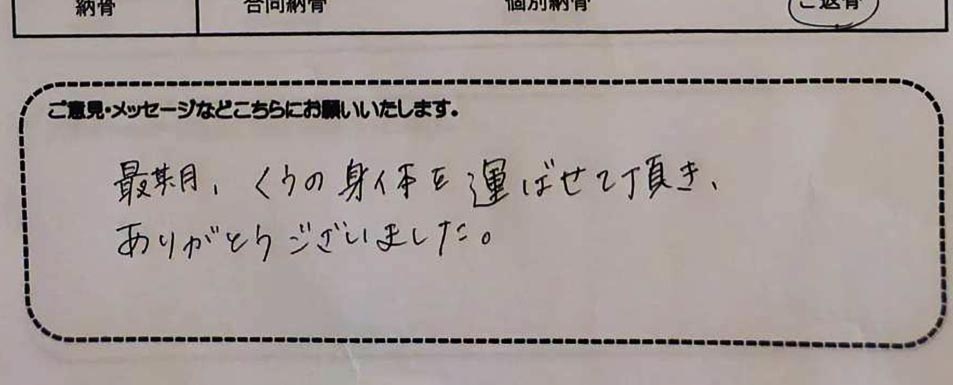 納骨 合同納骨 個別納骨 ご返骨
ご意見・メッセージなどこちらにお願いいたします。
最期、くうの身体を運ばせて頂き、
ありがとうございました。